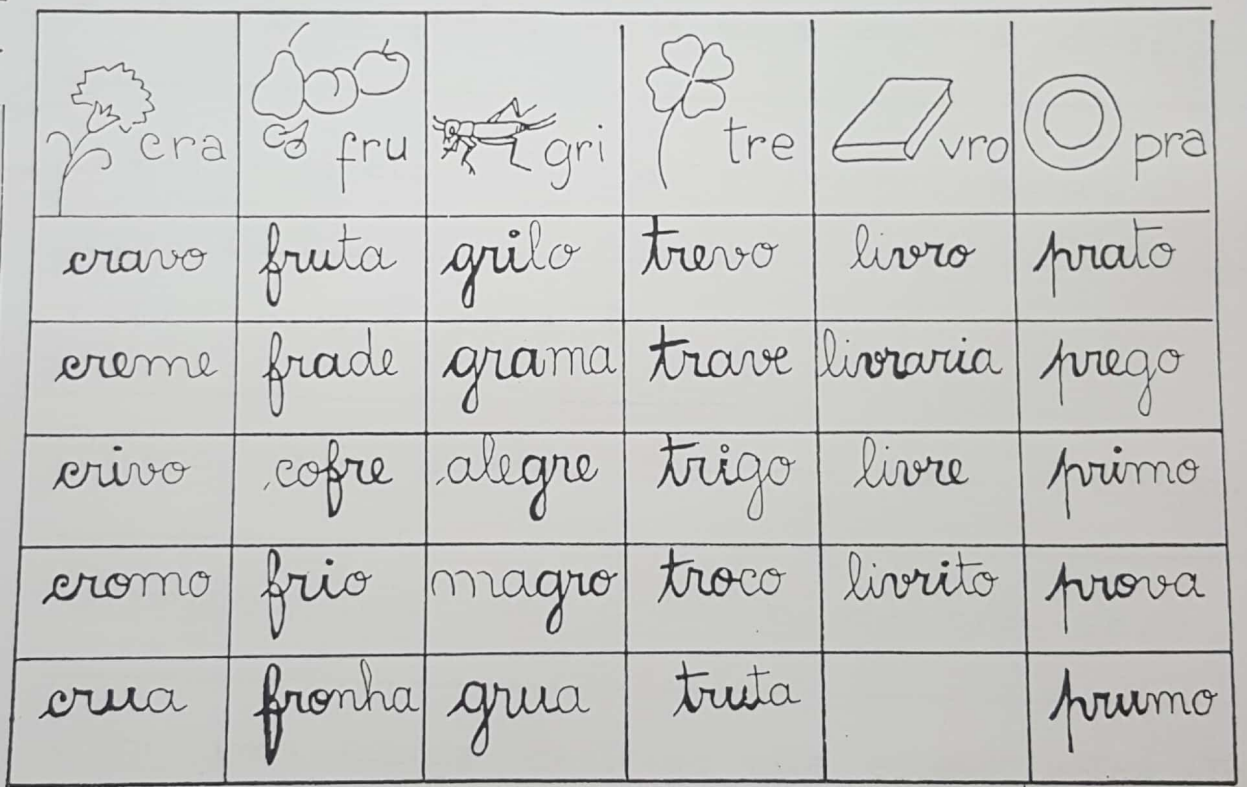 cra fru gri tre vro pra
cravo fruta grilo trevo livro prato
creme frade grama trave livraria prego
crivo cofre alegre trigo livre primo
cromo frio magro troco livrito prova
crua fronha grua truta prumo